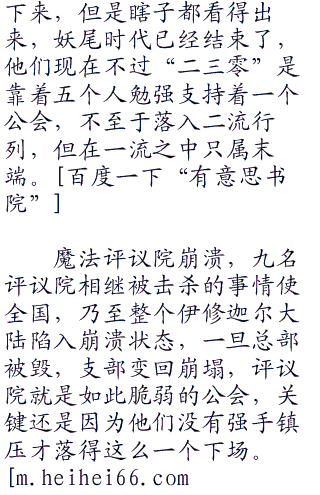 下来，但是瞎子都看得出
来，妖尾时代已经结束了，
他们现在不过“二三零”是
靠着五个人勉强支持着一个
公会，不至于落入二流行
列，但在一流之中只属末
端。[百度一下“有意思书
院”]
魔法评议院崩溃，九名
评议院相继被击杀的事情使
全国，乃至整个伊修迦尔大
陆陷入崩溃状态，一旦总部
被毁，支部变回崩塌，评议
院就是如此脆弱的公会，关
键还是因为他们没有强手镇
压才落得这么一个下场。
[m.heihei66.com